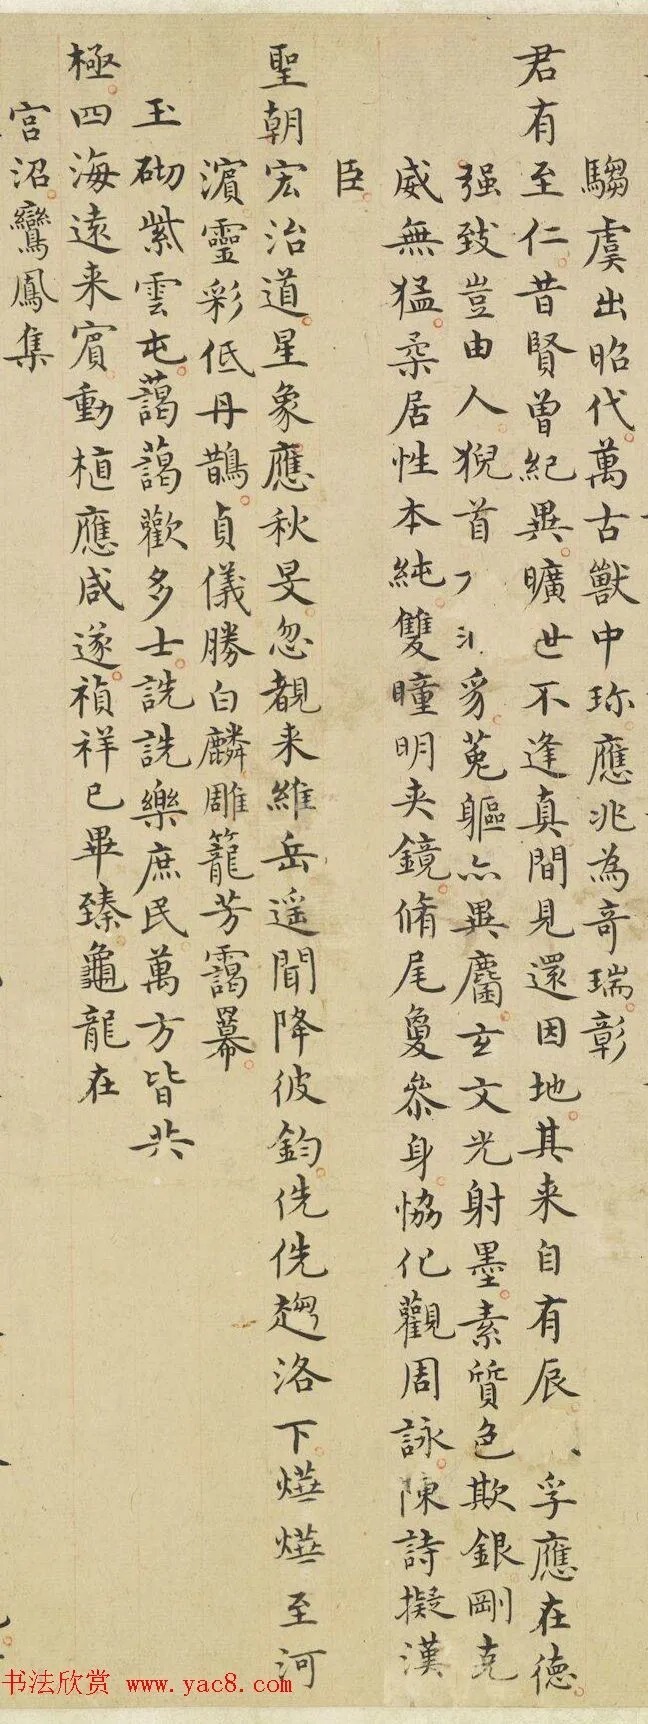 騶虞出昭代萬古獸中珎應兆為奇瑞彰
君有至仁昔賢曾紀異曠世不逢真間見還因地其来自有辰孚應在德
强致豈由人猊首豸菟軀亦異麕玄文光射墨素質色欺銀剛克
威無猛柔居性本純雙瞳明夾鏡脩尾夐叅身恊化觀周詠陳詩擬漢
臣
聖朝宏治道星象應秋旻忽覩来維岳遥聞降彼鈞侁侁趨洛下爗爗至河
濵靈彩低丹鵲貞儀勝白麟雕籠芳靄羃
玉砌紫雲屯藹藹歡多士詵詵樂庶民萬方皆共
極四海遠来賔動植應咸遂禎祥已畢臻龜龍在
宫沼鸞鳳集
书法欣赏 www.yac8.com